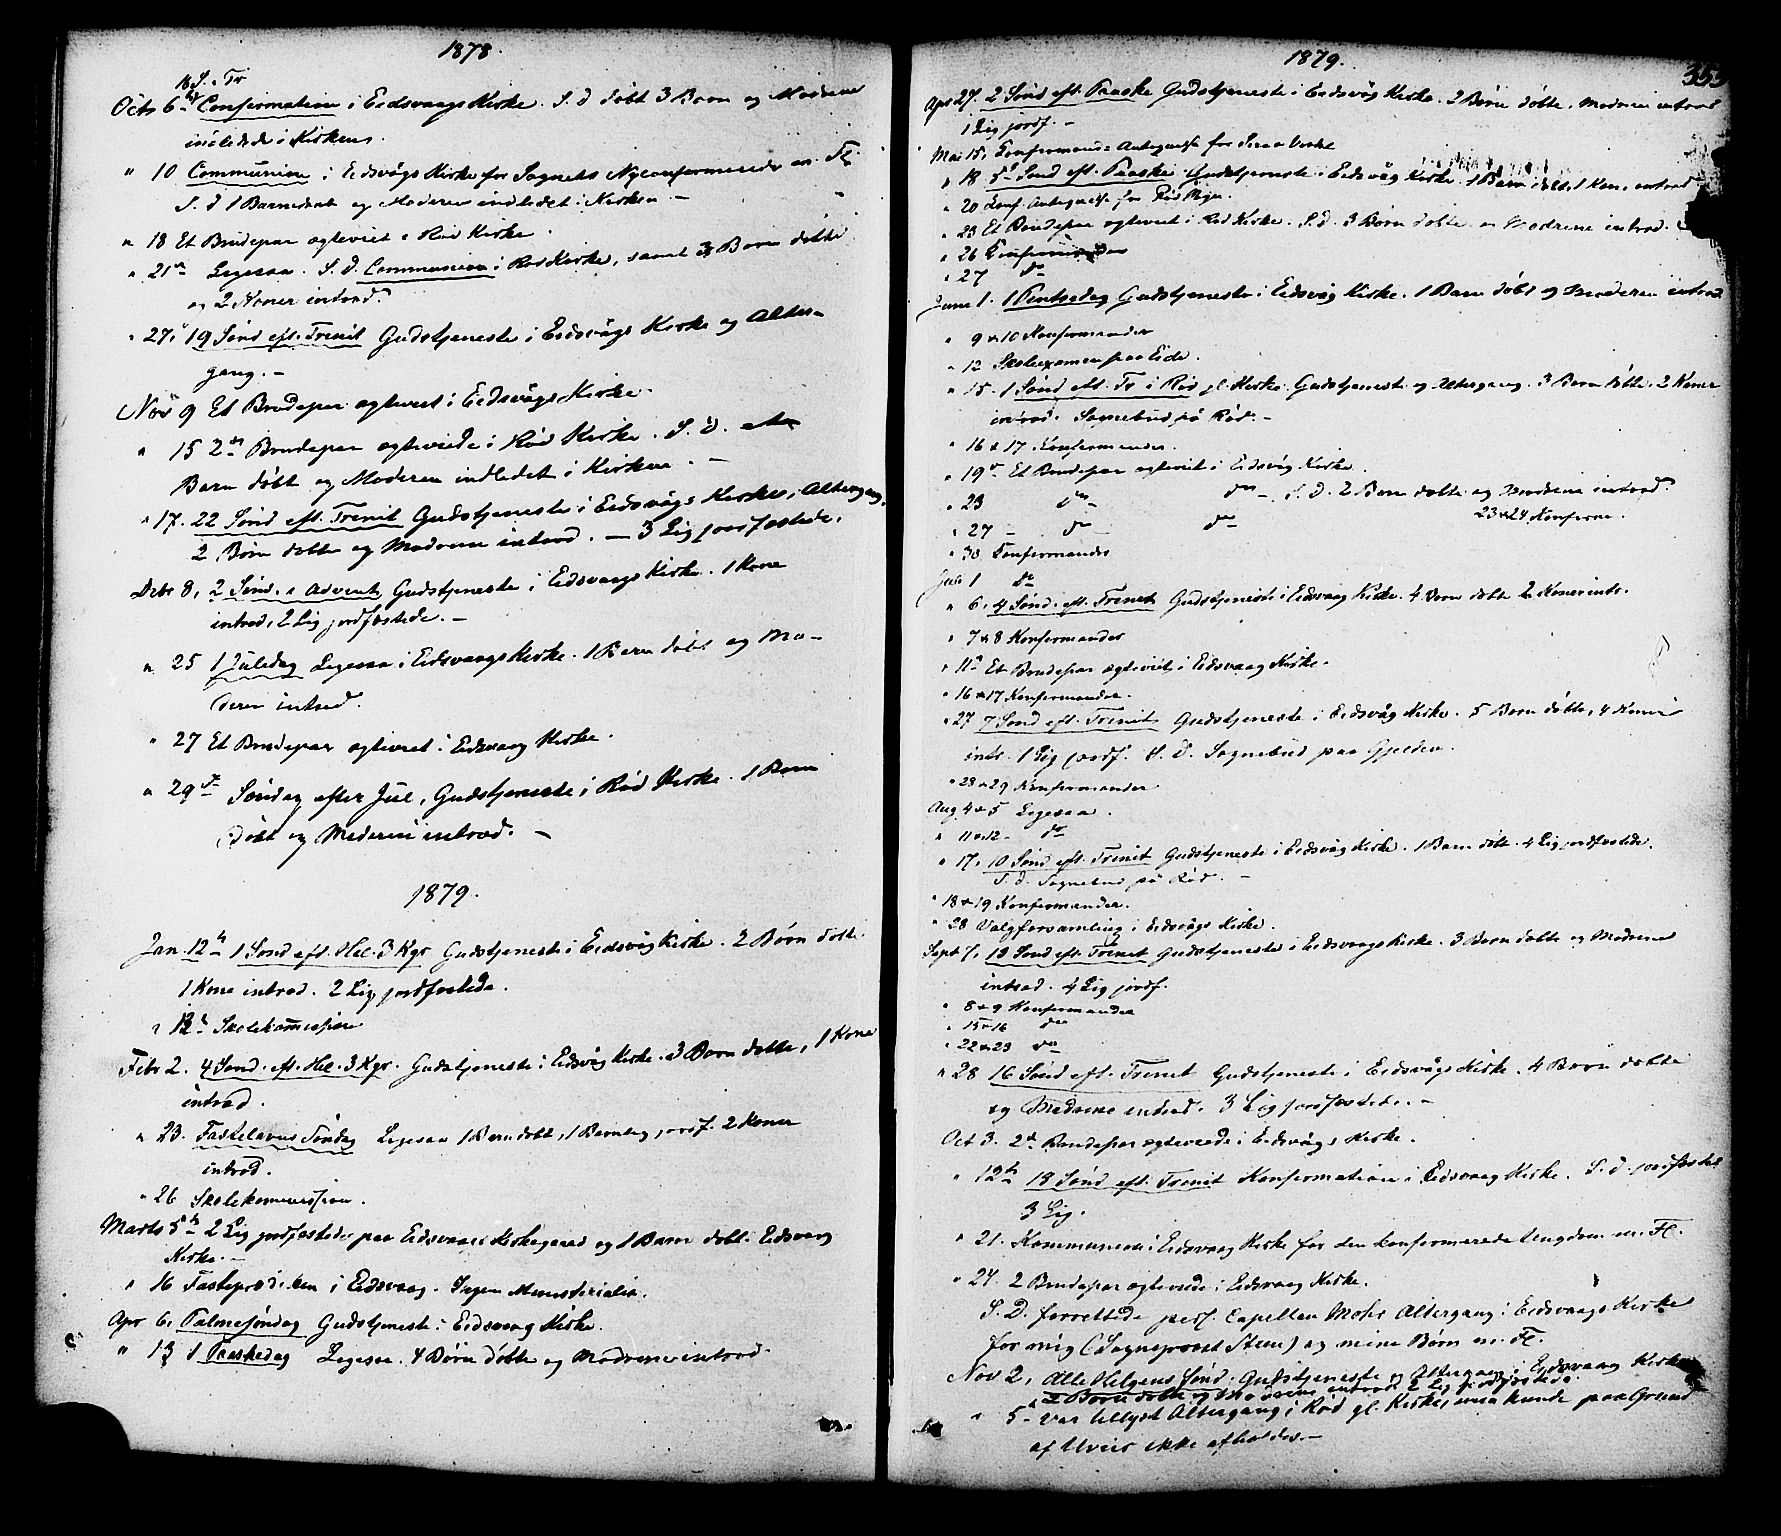 1878.
16 S. e. Tr
Octb 6te Confirmation i Eidsvaags Kirke. S. d. döbt 3 Børn og Mødrene
indledede i Kirken.
" 10 Communion i Eidsvågs Kirke for Sognets Nyconfirmerede m. Fl.
S. d 1 Barnedaab og Moderen indledet i Kirken. –
" 18 Et Brudepar egteviet i Rød Kirke.
" 21de Ligesaa. S. d. Communion i Rød Kirke, samt 3 Børn döbte
og 2 Koner introd.
" 27, 19 Sönd eft. Trinit Gudstjeneste i Eidsvågs Kirke og Alter-
gang. –
Nov 9 Et Brudepar egteviet i Eidsvågs Kirke.
" 15 2de Brudepar egteviede i Rød Kirke. S. d. et
Barn döbt og Moderen indledet i Kirken. –
" 17. 22 Sönd eft. Trinit Gudstjeneste i Eidsvågs Kirke, Altergang,
2 Børn döbte og Mødrene introd. – 3 Lig jordfæstede.
Decbr 8, 2 Sönd. i Advent Gudstjeneste i Eidsvaags Kirke. 1 Kone
introd, 2 Lig jordfæstede. –
" 25 1 Juledag Ligesaa i Eidsvaags Kirke. 1 Barn döbt og Mo-
deren introd.
" 27 Et Brudepar egteviet i Eidsvaag Kirke.
" 29de Söndag efter Jul, Gudstjeneste i Rød Kirke. 1 Barn
döbt og Moderen introd. –
1879.
Jan. 12te 1 Sönd eft. Hel. 3 Kgr Gudstjeneste i Eidsvåg Kirke. 2 Børn döbt.
1 Kone introd. 2 Lig jordfæstede.
" 13 Skolekommission
Febr 2. 4 Sönd. eft. Hel. 3 Kgr. Gudstjeneste i Eidsvåg Kirke. 3 Børn döbte, 1 Kone
introd.
" 23. Fastelavns Söndag Ligesaa 1 Barn döbt, 1 Barnelig jordf. 2 Koner
introd.
" 26 Skolekommission.
Marts 5te 2 Lig jordfæstede paa Eidsvaags Kirkegaard og 1 Barn döbt i Eidsvaag
Kirke. –
" 16 Fasteprædiken i Eidsvaag. Ingen Ministerialia.
Apr 6, Palmesöndag Gudstjeneste i Eidsvaag Kirke.
" 13 1 Paaskedag Ligesaa. 4 Børn döbte og Mødrene introd.
1879.
353
Apr 27. 2 Sönd eft. Paaske Gudstjeneste i Eidsvåg Kirke. 2 Børn döbte, Mødrene introd
1 Lig jordf. –
Mai 15, Konfirmand-Antegnelse for
" 18 5te Sönd eft. Paaske Gudstjeneste i Eidsvåg Kirke. 1 Barn döbt, 1 Kone introd
" 20 Konf. Antegnelse for Rød
" 23 Et Brudepar egteviet i Rød Kirke. S. d. 3 Børn döbte og Mødrene introd.
" 26 Konfirmander
" 27 do
Juni 1. 1 Pintsedag Gudstjeneste i Eidsvåg Kirke. 1 Barn döbt og Moderen introd
" 9 & 10 Konfirmander
" 12 Skoleexamen paa Eide.
" 15. 1 Sönd eft. Tr i Rød gl. Kirke Gudstjeneste og Altergang. 3 Børn döbte. 2 Koner
introd. Sognebud på Rød. –
" 16 & 17 Konfirmander.
" 19de Et Brudepar egteviet i Eidsvåg Kirke.
" 23 do do – S. d. 2 Børn döbte og Mødrene introd.
" 27 – do do 23 & 24 Konfirm.
" 30 Konfirmander
Juli 1 do
" 6, 4 Sönd. eft. Trinit Gudstjeneste i Eidsvaag Kirke. 4 Børn döbte 2 Koner intr.
" 7 & 8 Konfirmander
" 11te Et Brudepar egteviet i Eidsvaag Kirke.
" 16 & 17 Konfirmander.
" 27 7 Sönd eft. Trinit Gudstjeneste i Eidsvåg Kirke. 5 Børn döbte, 4 Koner
intr. 1 Lig jordf. S. D. Sognebud paa Gjelden.
" 28 & 29 Konfirmander
Aug 4 & 5 Ligesaa.
" 11 & 12 – do
" 17, 10 Sönd eft. Trinit Gudstjeneste i Eidsvåg Kirke. 1 Barn döbt. 4 Lig jordfæstede.
S. d. Sognebud på Rød. –
" 18 & 19 Konfirmander.
" 28 Valgforsamling i Eidsvågs Kirke.
Sept 7, 13 Sönd eft. Trinit Gudstjeneste i Eidsvaags Kirke. 3 Børn döbte og Mødrene
introd. 4 Lig jordf.
" 8 & 9 Konfirmander
" 15 & 16 do
" 22 & 23 do
" 28 16 Sönd eft. Trinit Gudstjeneste i Eidsvågs Kirke. 4 Børn döbte
og Mødrene introd. 3 Lig jordfæstede. –
Oct 3. 2de Brudepar egteviede i Eidsvågs Kirke.
" 12te 18 Sönd eft. Trinit Konfirmation i Eidsvaag Kirke. S. d. jordfæstet
3 Lig.
" 21. Kommunion i Eidsvaag Kirke for den konfirmerede Ungdom m. Fl.
" 24. 2 Brudepar egteviede i Eidsvaag Kirke.
S. D. forrettede pers. Capellan Mohr Altergang i Eidsvaags Kirke
for mig (Sogneprest Steen) og mine Børn m. Fl.
Nov 2, Alle Helgens Sönd. Gudstjeneste og Altergang i Eidsvaag Kirke
2 Børn döbte og Mødrene introd 2 Lig jordfæstede.
" 5 – Var tillyst Altergang i Rød gl. Kirke, men kunde paa Grund
af Uveir ikke afholdes. –